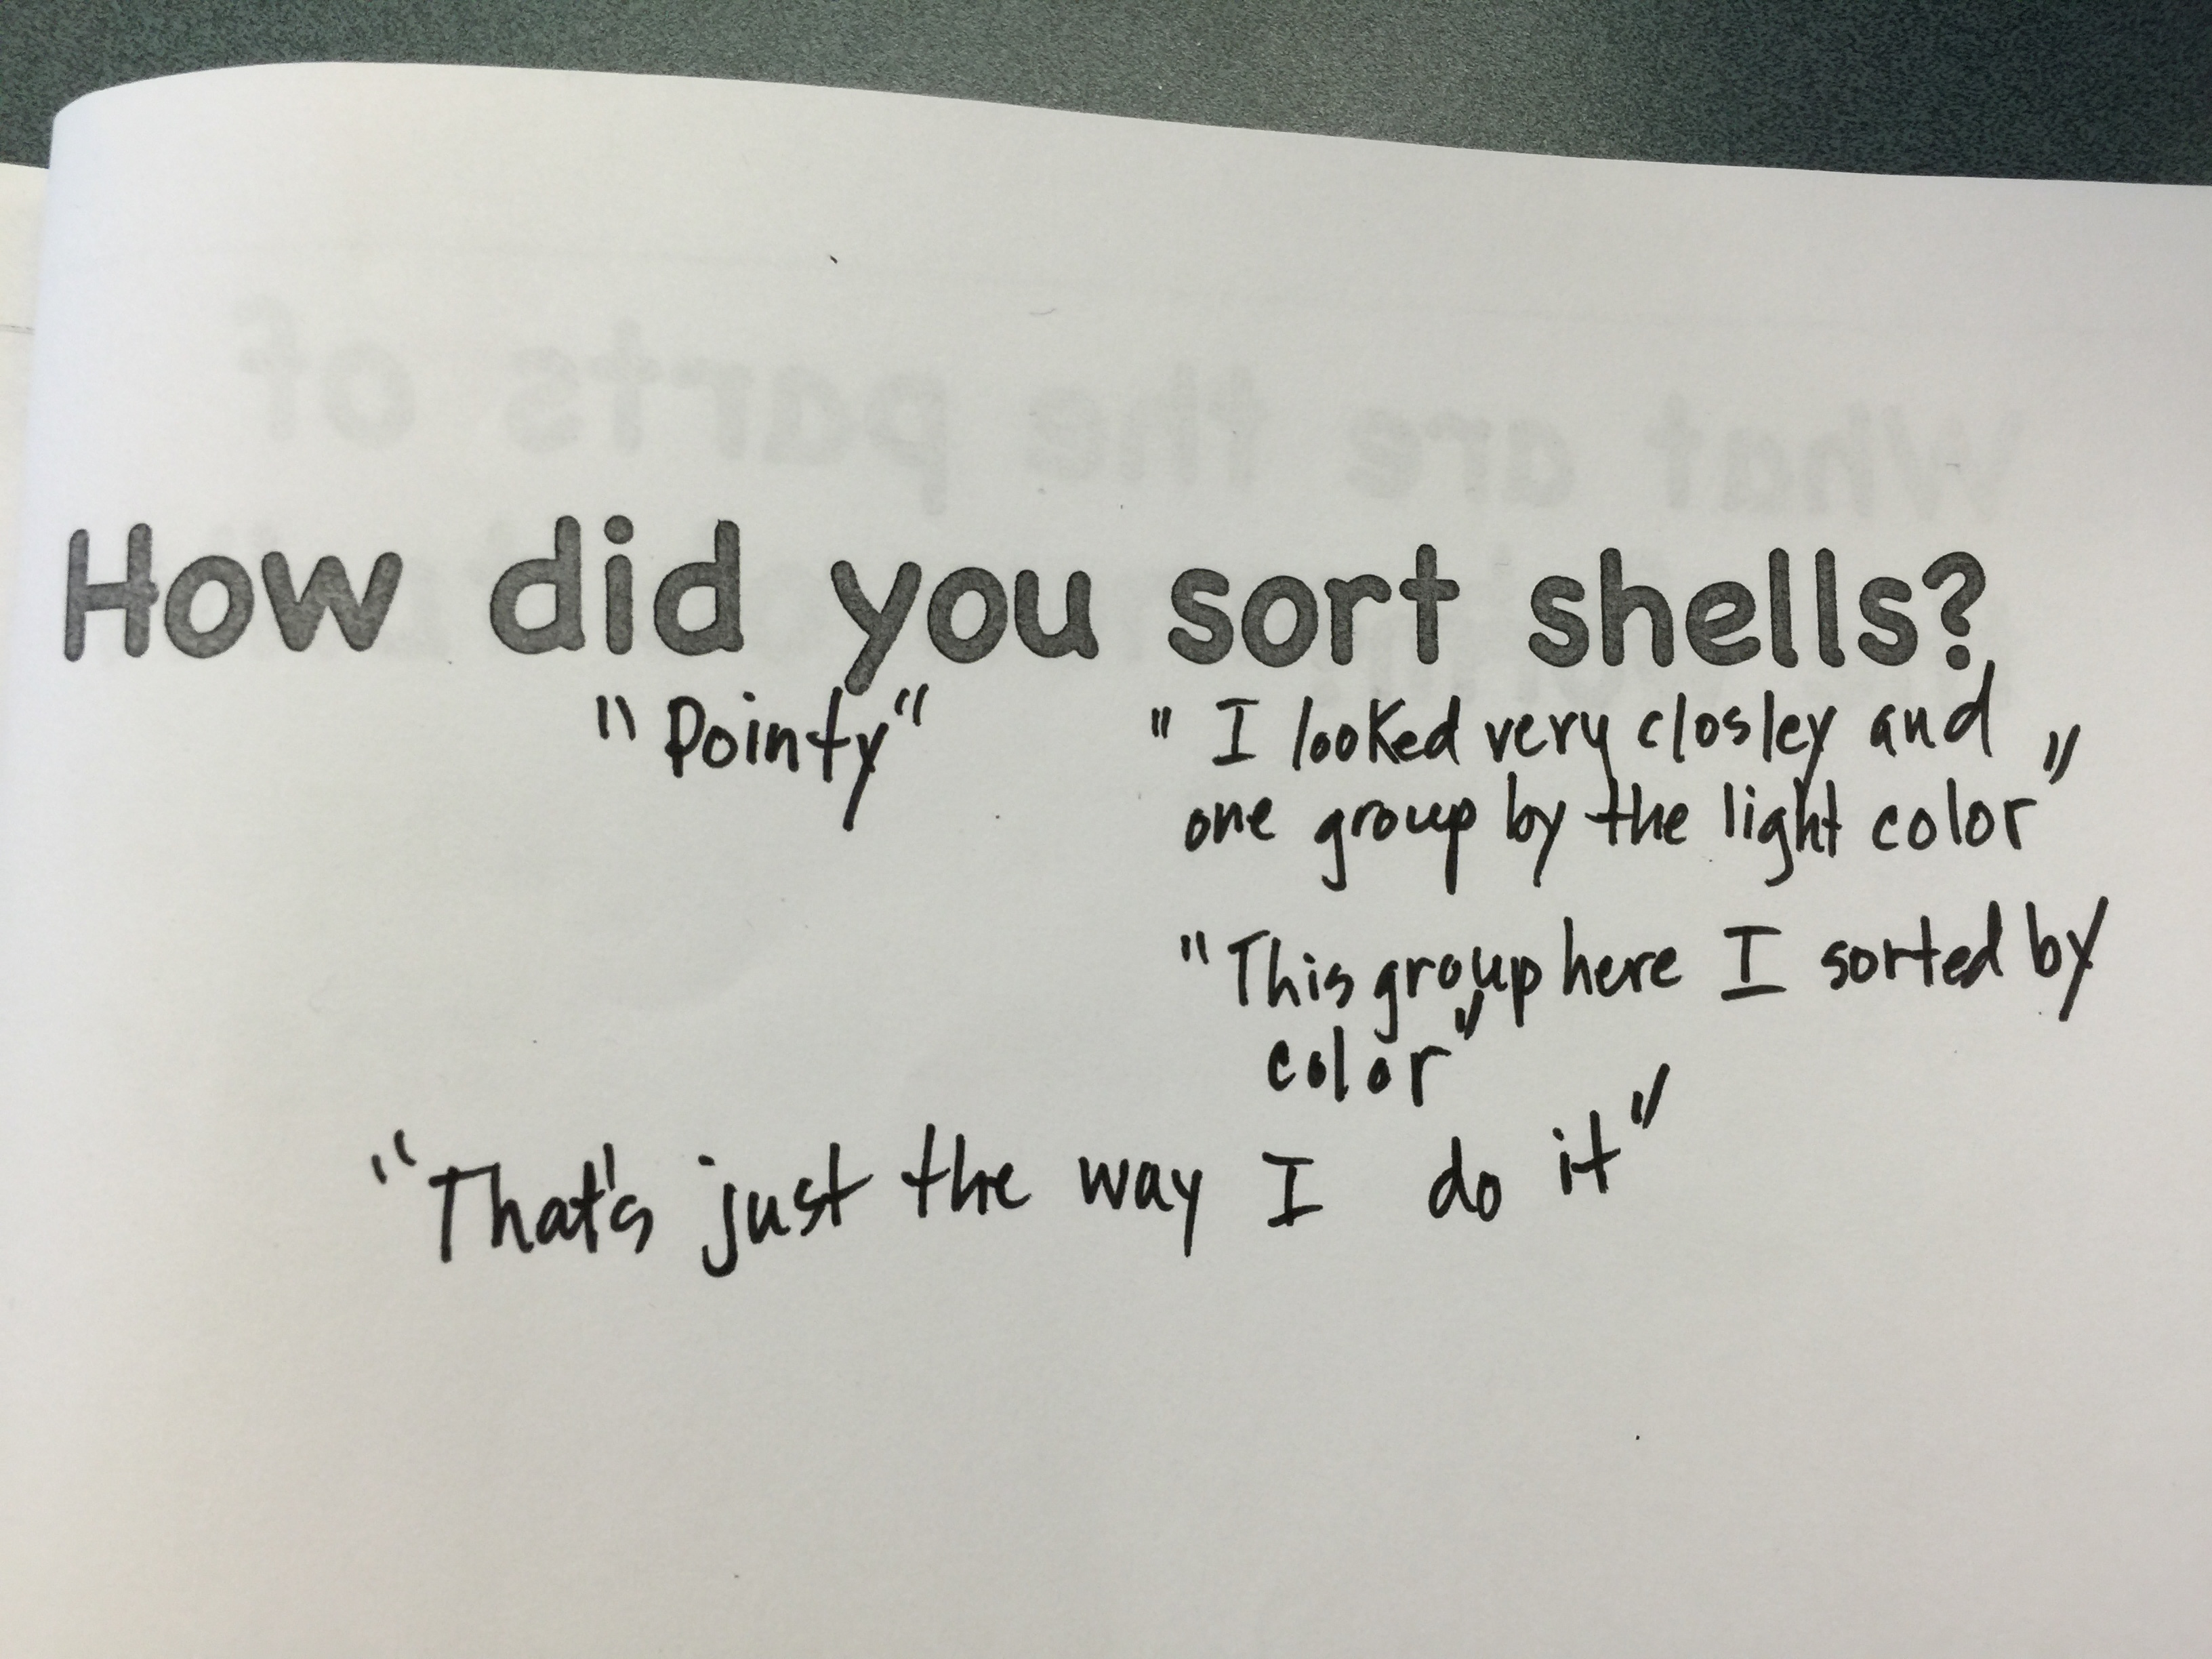 What are the parts of
How did you sort shells?
"Pointy" "I looked very closley and"
one group by the light color"
"This group here I sorted by
color"
"That's just the way I do it"